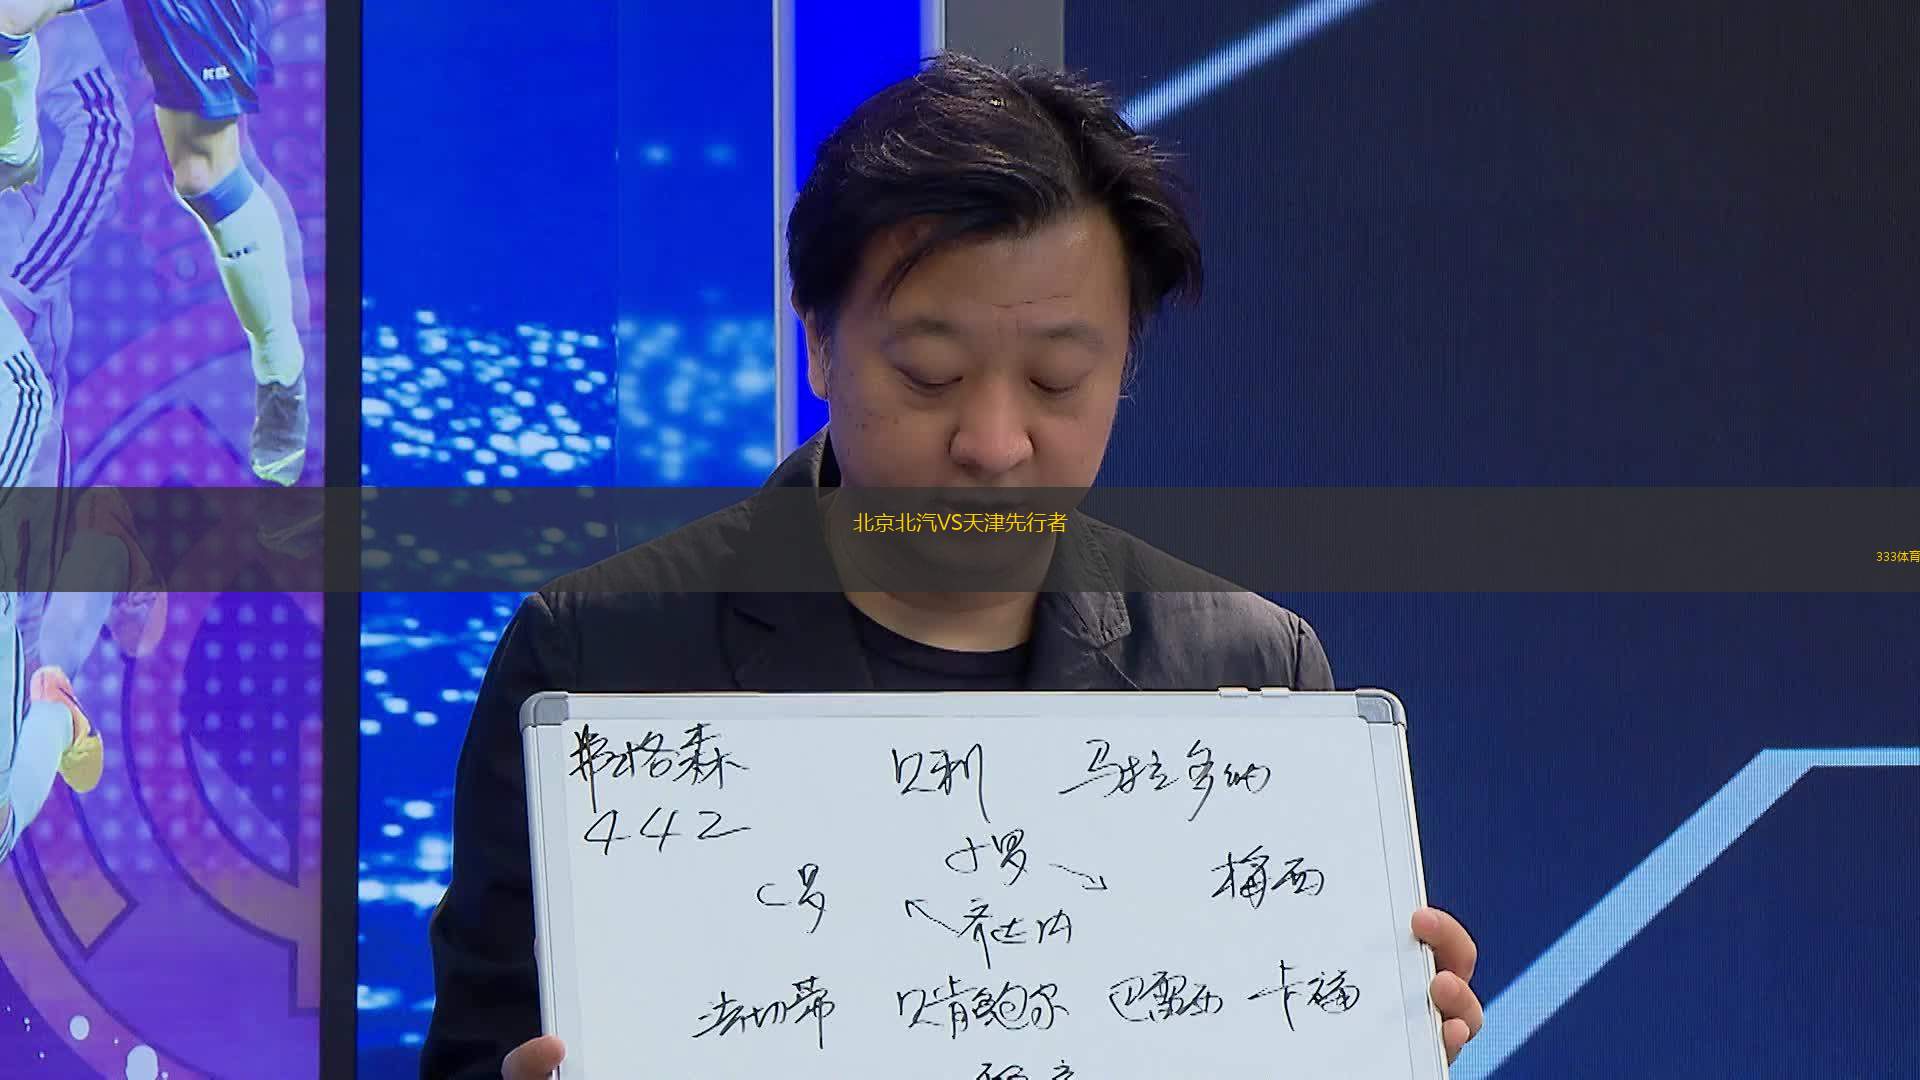 北京北汽VS天津先行者
333体育
弗格森 贝利 马拉多纳
442
小罗
C罗 梅西
齐达内
法切蒂 贝肯鲍尔 巴雷西 卡福